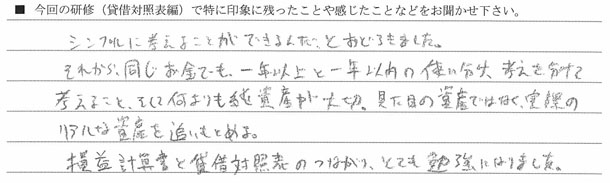 ■ 今回の研修（貸借対照表編）で特に印象に残ったことや感じたことなどをお聞かせ下さい。
シンプルに考えることができるんだ、とおどろきました。
それから、同じお金でも、一年以上と一年以内の使い分け、考えを分けて
考えること、そして何よりも純資産が大切。見た目の資産ではなく、実際の
リアルな資産を追いもとめる。
損益計算書と貸借対照表のつながり、とても勉強になりました。